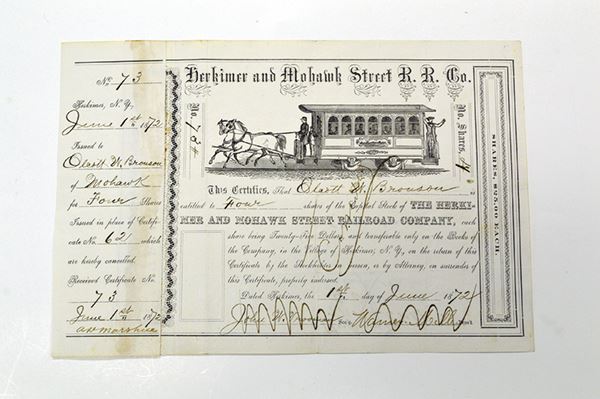 No. 73
Herkimer, N. Y.,
June 1st 1872
Issued to
Olcott W. Bronson
of Mohawk
for Four Shares
Issued in place of Certifi-
cate No. 62 which
are hereby cancelled.
Received Certificate No.
73
June 1st 1872
Herkimer and Mohawk Street R. R. Co.
No. 73
No. Shares, 4
This Certifies, That Olcott W. Bronson is
entitled to Four shares of the Capital Stock of THE HERKI-
MER AND MOHAWK STREET RAILROAD COMPANY, each
share being Twenty-Five Dollars, and transferable only on the Books of
the Company, in the Village of Herkimer, N. Y., on the return of this
Certificate by the Stockholder in person, or by Attorney, on surrender of
this Certificate, properly endorsed.
Dated Herkimer, the 1st day of June 1872
Sec'y Pres't
SHARES, $25.00 EACH.